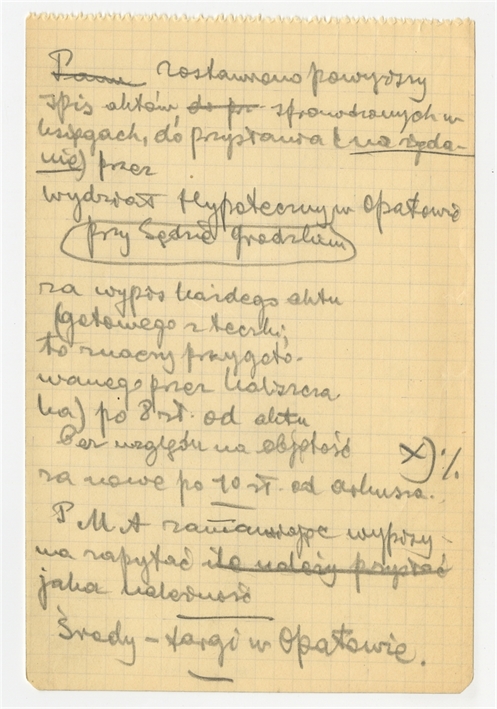 zostawiono powyższy
spis aktów do pr sprawdzonych w
księgach, do przysłania (na żąda-
nie) przez
wydział Hypoteczny w Opatowie
przy Sądzie Grodzkim
za wypis każdego aktu
(gotowego z teczki,
to znaczy przygoto-
wanego przez
ka) po 8 zł. od aktu
bez względu na objętość
x) ./.
za nowe po 10 zł. od arkusza.
P M A zamawiając wypisy -
ma zapytać ile należy przysłać
jaka należność
Środy - targi w Opatowie.